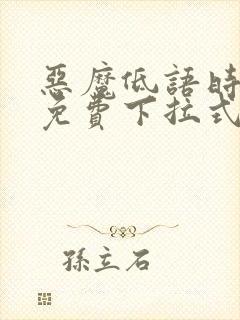 惡魔低語時
免費下拉式
孫立石